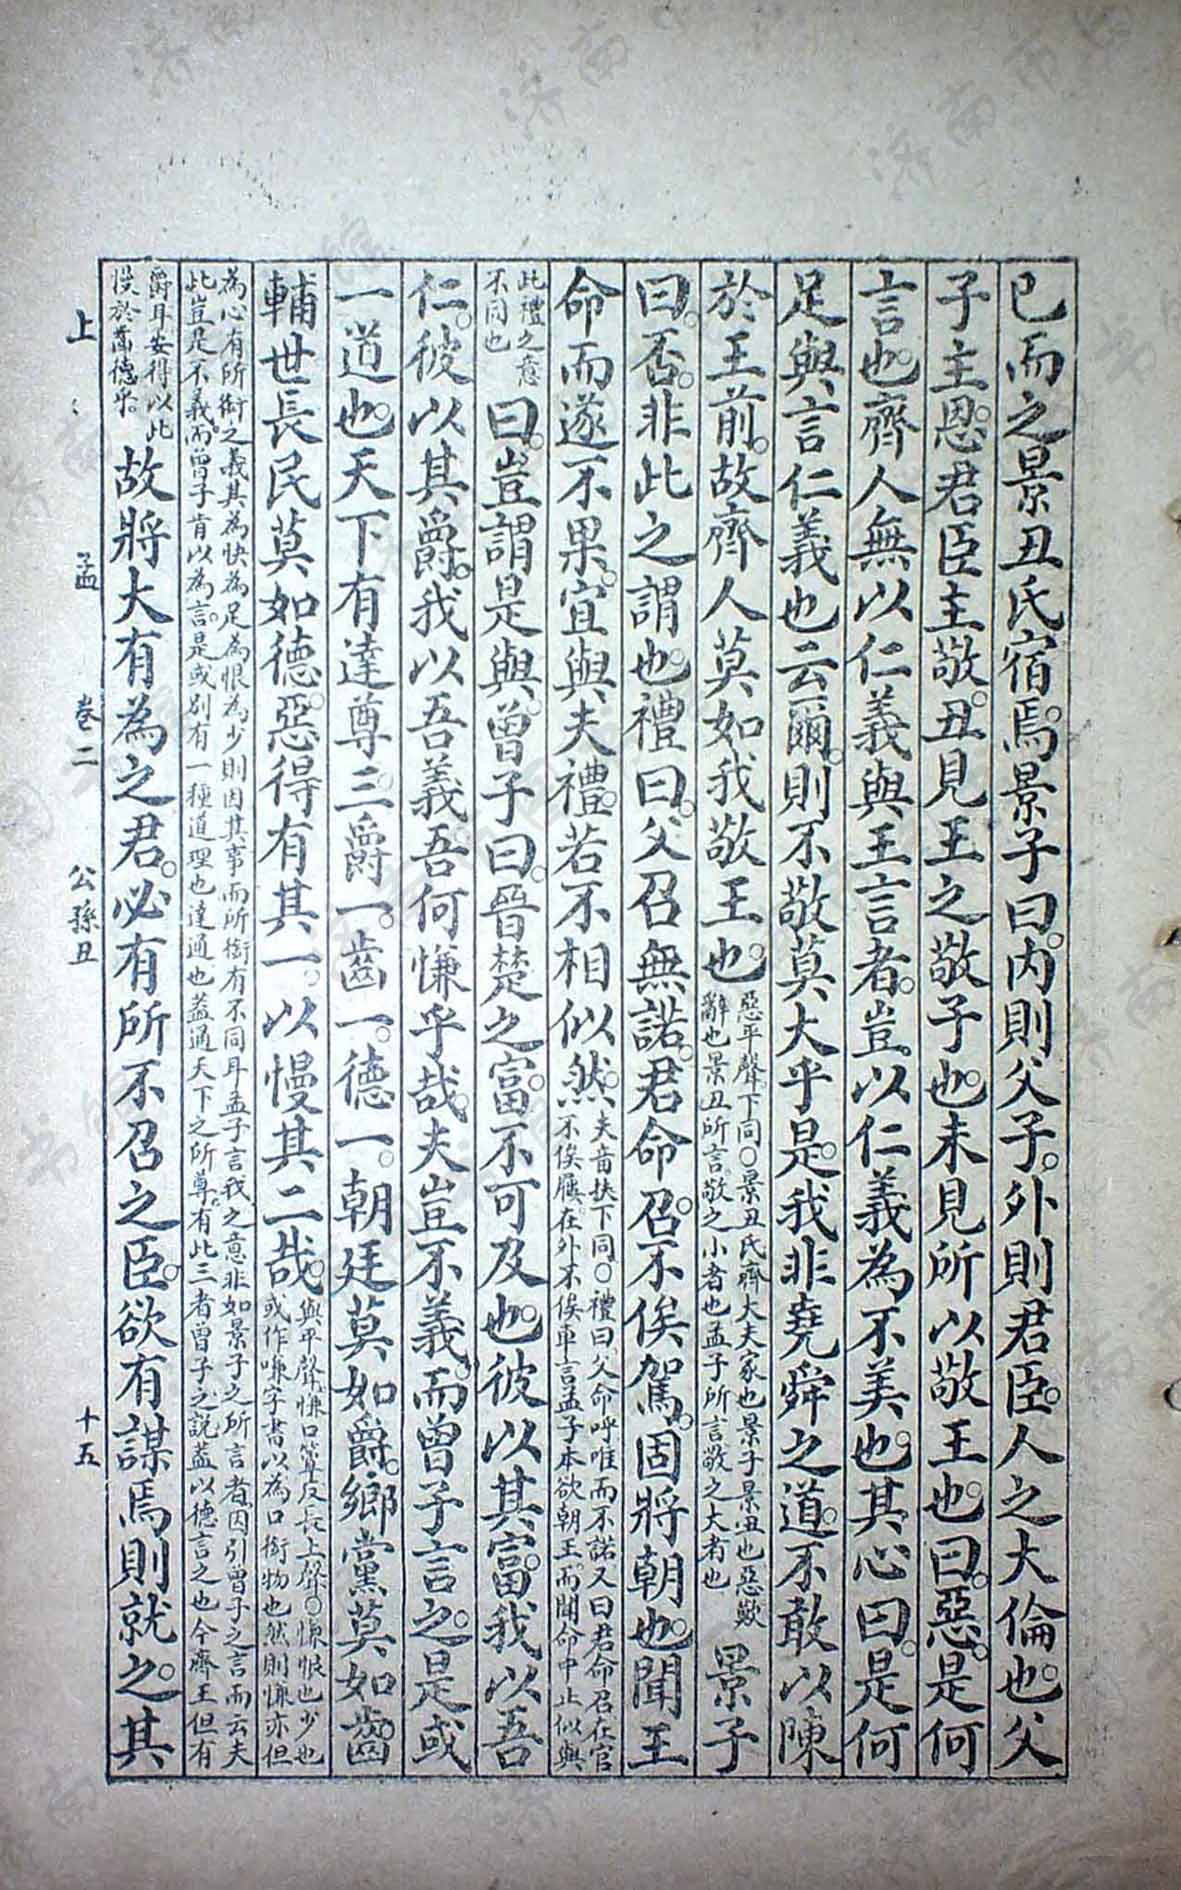 已而之景丑氏宿焉。景子曰。內則父子。外則君臣。人之大倫也。父
子主恩。君臣主敬。丑見王之敬子也。未見所以敬王也。曰。惡。是何
言也。齊人無以仁義與王言者。豈以仁義為不美也。其心曰。是何
足與言仁義也云爾。則不敬莫大乎是。我非堯舜之道。不敢以陳
於王前。故齊人莫如我敬王也。
惡平聲。下同。○景丑氏齊大夫家也景子景丑也惡歎
辭也景丑所言敬之小者也孟子所言敬之大者也
景子
曰。否。非此之謂也。禮曰。父召無諾。君命召。不俟駕。固將朝也。聞王
命而遂不果。宜與夫禮。若不相似然。
夫音扶下同。○禮曰。父命呼唯而不諾又曰君命召在官
不俟屨。在外不俟車言孟子本欲朝王。而聞命中止似與
此禮之意
不同也
曰。豈謂是與。曾子曰。晉楚之富。不可及也。彼以其富。我以吾
仁。彼以其爵。我以吾義吾何慊乎哉。夫豈不義。而曾子言之。是或
一道也。天下有達尊三。爵一。齒一。德一。朝廷莫如爵。鄉黨莫如齒。
輔世長民莫如德。惡得有其一。以慢其二哉。
與平聲。慊口簟反。長上聲。○慊恨也少也
或作嗛字書以為口銜物也然則慊亦但
為心有所銜之義其為快為足為恨為少則因其事而所銜有不同耳孟子言我之意非如景子之所言者。因引曾子之言而云夫
此豈是不義。而曾子肯以為言。是或別有一種道理也達通也蓋通天下之所尊。有此三者曾子之說蓋以德言之也今齊王但有
爵耳安得以此
慢於齒德乎。
故將大有為之君。必有所不召之臣。欲有謀焉則就之。其
上 孟 卷二 公孫丑 十五